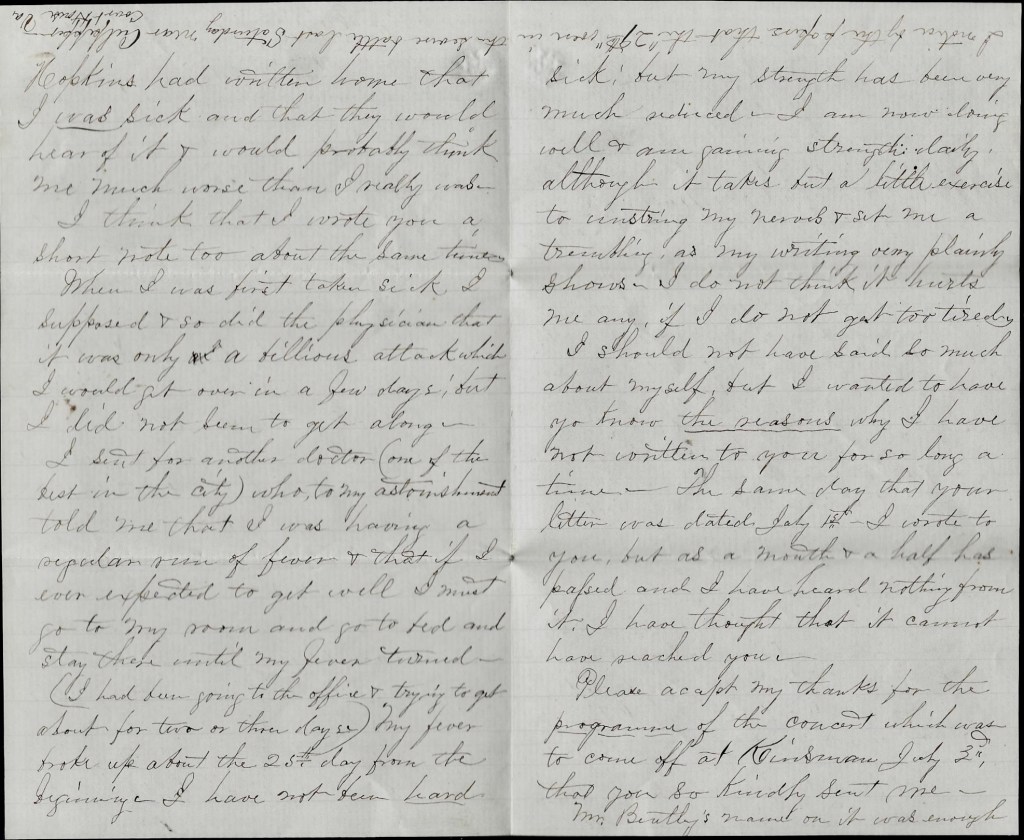 Hopkins had written home that
I was sick and that they would
hear of it & would probably think
me much worse than I really was—
I think that I wrote you a
short note too about the same time—
When I was first taken sick I
supposed & so did the physician that
it was only a billious attack which
I would get over in a few days; but
I did not seem to get along—
I sent for another doctor (one of the
best in the city) who, to my astonishment
told me that I was having a
regular run of fever & that if I
ever expected to get well I must
go to my room and go to bed and
stay there until my fever turned—
(I had been going to the office & trying to get
about for two or three days) My fever
broke up about the 25th day from the
beginning— I have not been hard
sick; but my strength has been very
much reduced— I am now doing
well & am gaining strength daily,
although it takes but a little exercise
to unstring my nerves & set me a
trembling, as my writing very plainly
shows— I do not think it hurts
me any, if I do not get too tired—
I should not have said so much
about myself, but I wanted to have
yo know the reasons why I have
not written to you for so long a
time— The same day that your
letter was dated, July 1st— I wrote to
you, but as a month & a half has
passed and I have heard nothing from
it, I have thought that it cannot
have reached you—
Please accept my thanks for the
programme of the concert which was
to come off at Kinsman July 3d,
that you so kindly sent me—
Mr. Bently's name on it was enough
I notice by the papers that the "29th" were in the severe battle last Saturday near Culpepper
Court House Va